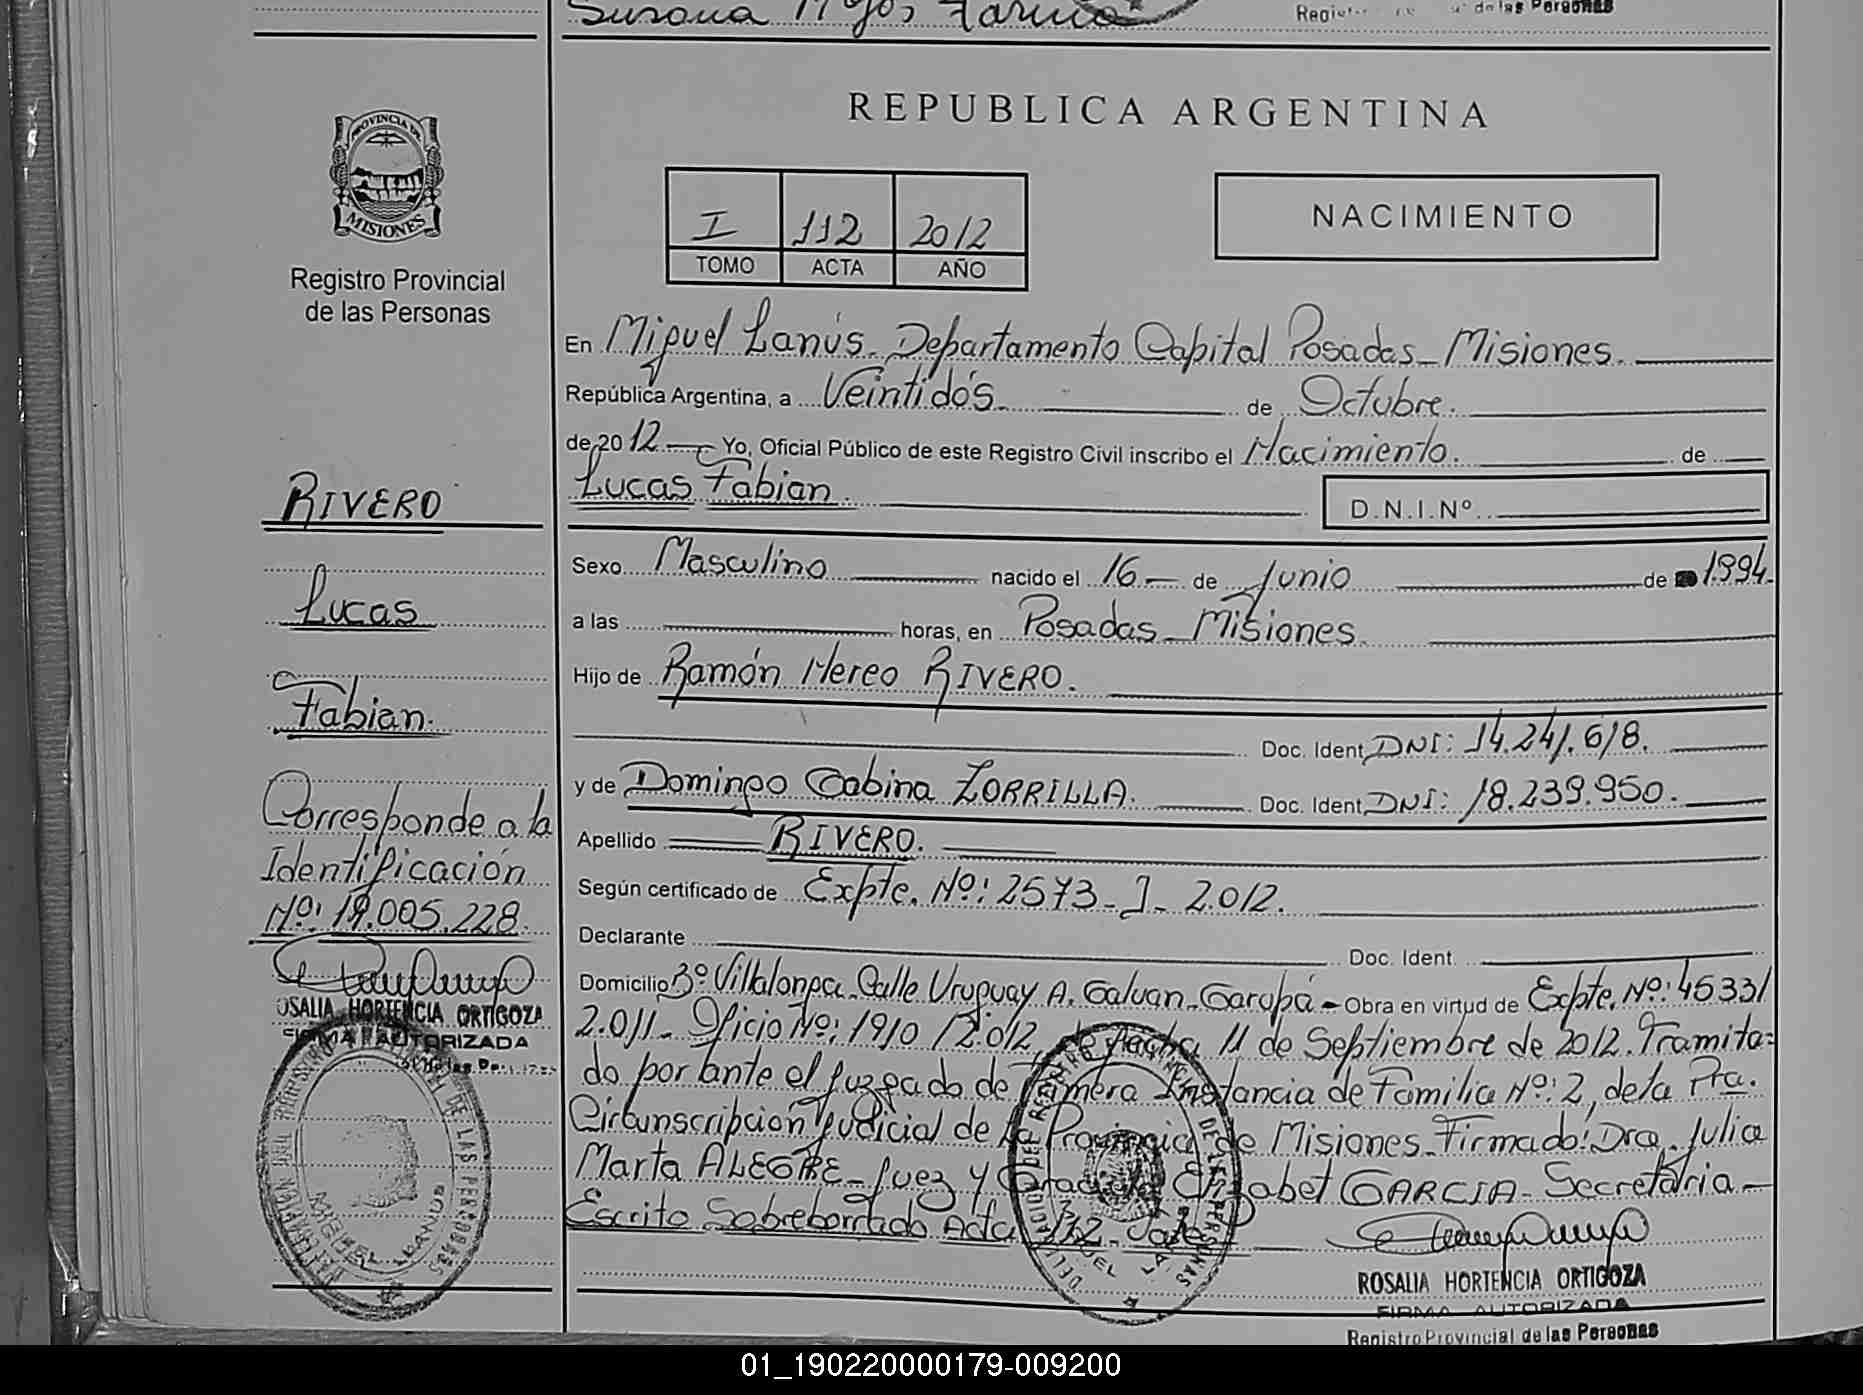 Susana M
Registro de las Personas
REPUBLICA ARGENTINA
PROVINCIA DE
MISIONES
Registro Provincial
de las Personas
I 112 2012
TOMO ACTA AÑO
NACIMIENTO
En Miguel Lanús. Departamento Capital Posadas_ Misiones.
República Argentina, a Veintidós de Octubre.
de 2012 Yo, Oficial Público de este Registro Civil inscribo el Nacimiento. de
Lucas Fabian. D.N.I.Nº
Sexo Masculino nacido el 16 de Junio de 1994.
a las horas, en Posadas_ Misiones.
Hijo de Ramón Nereo RIVERO.
Doc. Ident. DNI: 14.241.618.
y de Domingo Sabina ZORRILLA. Doc. Ident. DNI: 18.239.950.
Apellido RIVERO.
Según certificado de Expte. Nº: 2573_J_ 2.012.
Declarante Doc. Ident.
Domicilio Bº Villalonga_ Calle Uruguay A. Galvan_ Garupá - Obra en virtud de Expte. Nº: 4533/
2.011_ Oficio Nº: 1910 / 2.012, de fecha 11 de Septiembre de 2012. Tramita=
do por ante el Juzgado de Primera Instancia de Familia Nº: 2, de la Pra.
Circunscripción Judicial de la Provincia de Misiones_ Firmado: Dra. Julia
Marta ALEGRE_ Juez y Graciela Elizabet GARCIA_ Secretaria_
Escrito Sobreborrado Acta 112_ Vale
ROSALIA HORTENCIA ORTIGOZA
FIRMA AUTORIZADA
Registro Provincial de las Personas
RIVERO
Lucas
Fabian.
Corresponde a la
Identificación
Nº: 19.005.228.
OSALIA HORTENCIA ORTIGOZA
FIRMA AUTORIZADA
DE LAS PERSONAS
MIGUEL LANUS
01_190220000179-009200